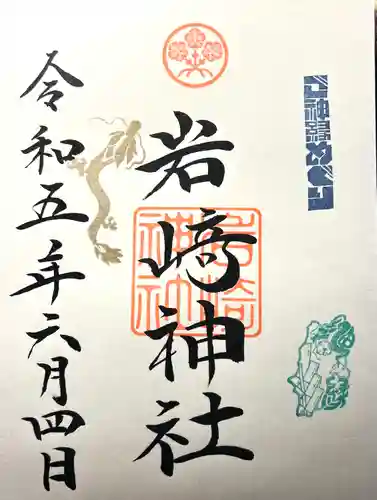 岩﨑神社
岩﨑神社
令和五年六月四日